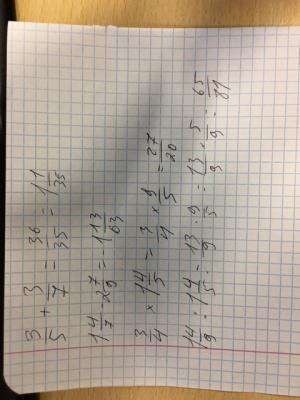 3/5 + 3/7 = 36/35 = 1 1/35
1 4/7 - 2 7/9 = -1 13/63
3/4 × 1 4/5 = 3/4 × 9/5 = 27/20
1 4/9 : 1 4/5 = 13/9 : 9/5 = 13/9 · 5/9 = 65/81